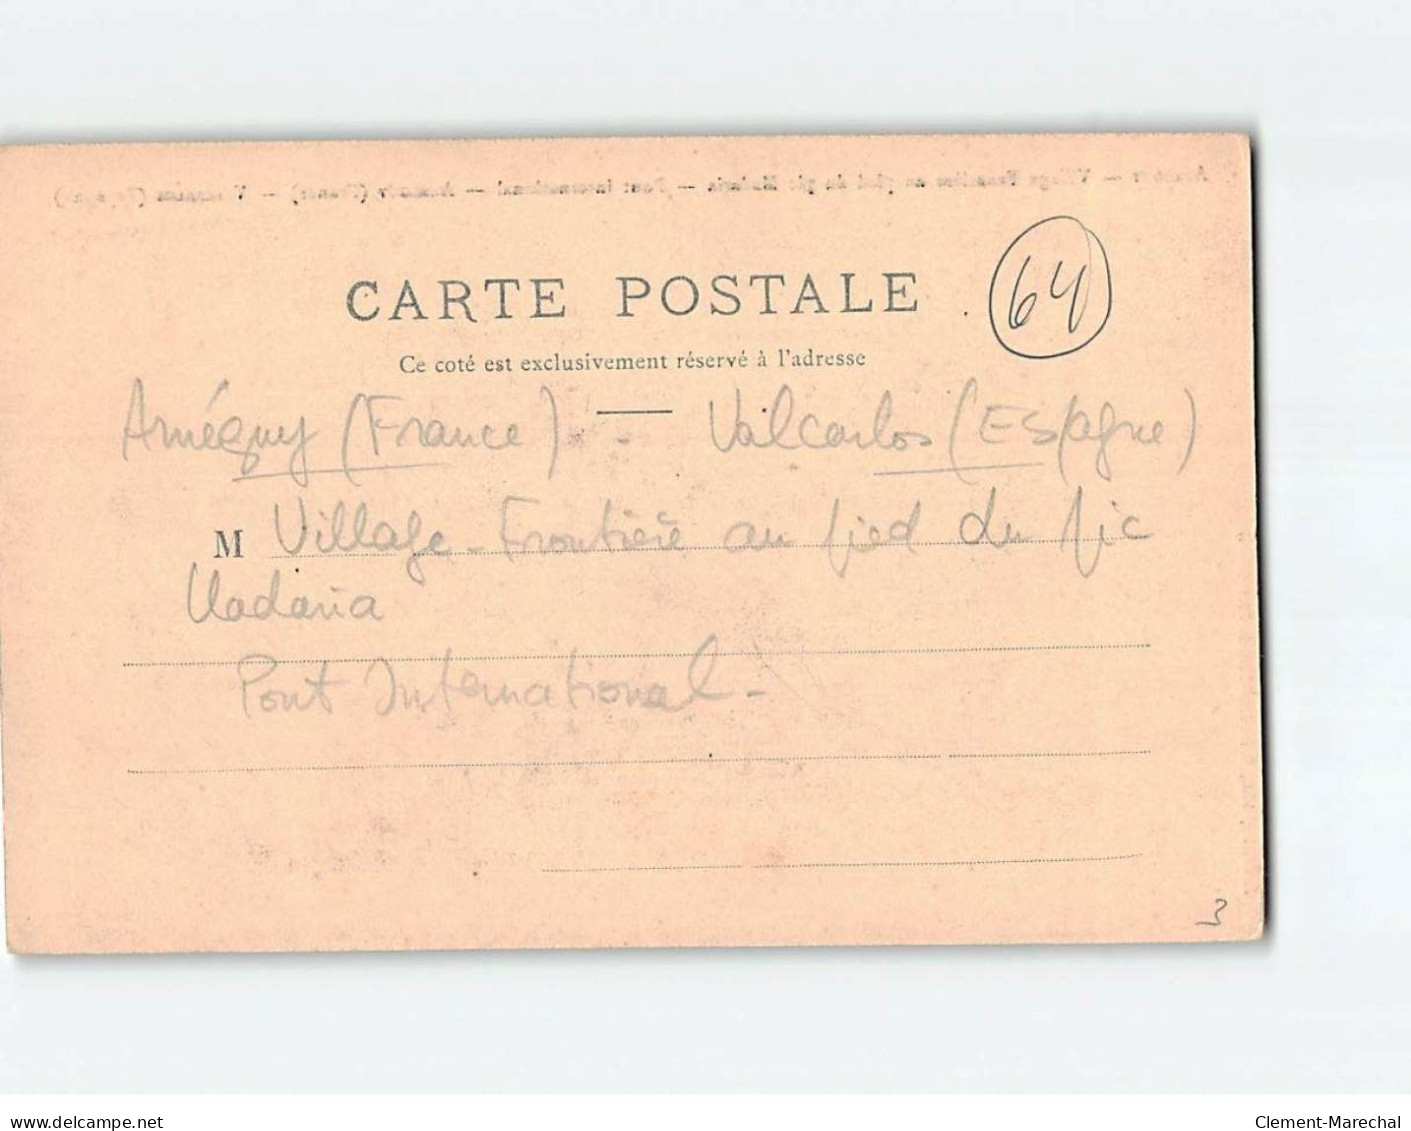 CARTE POSTALE
64
Ce coté est exclusivement réservé à l'adresse
Arnéguy (France) - Valcarlos (Espagne)
M Village - Frontière au pied du pic
Madaria
Pont International -
3
www.delcampe.net
Clement-Marechal